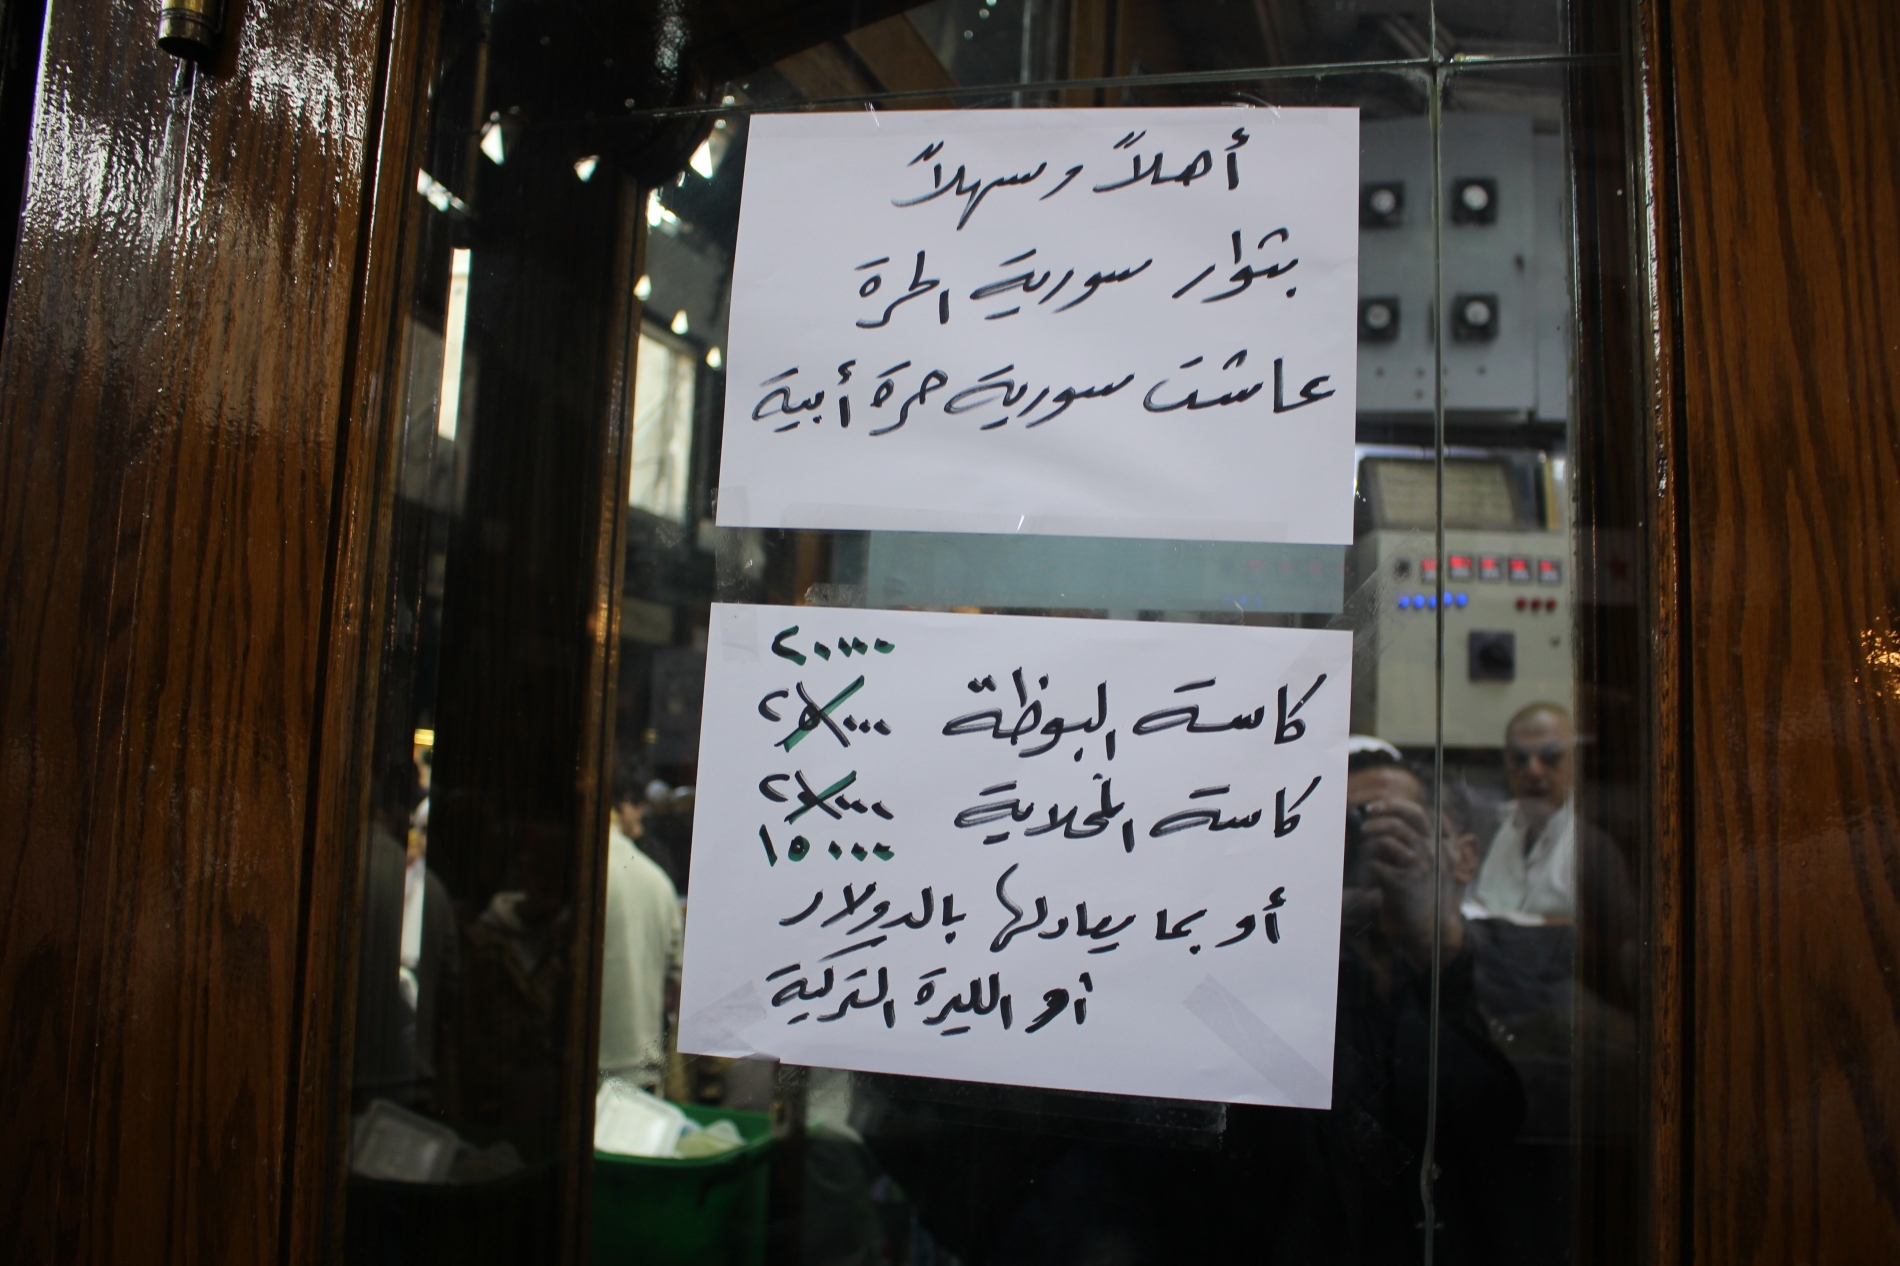 أهلاً وسهلاً
بثوار سورية الحرة
عاشت سورية حرة أبية
٢٠٠٠٠
كاسة البوظة ٢٥٠٠٠
كاسة المحلاية ٢٠٠٠٠
١٥٠٠٠
أو بما يعادلها بالدولار
أو الليرة التركية